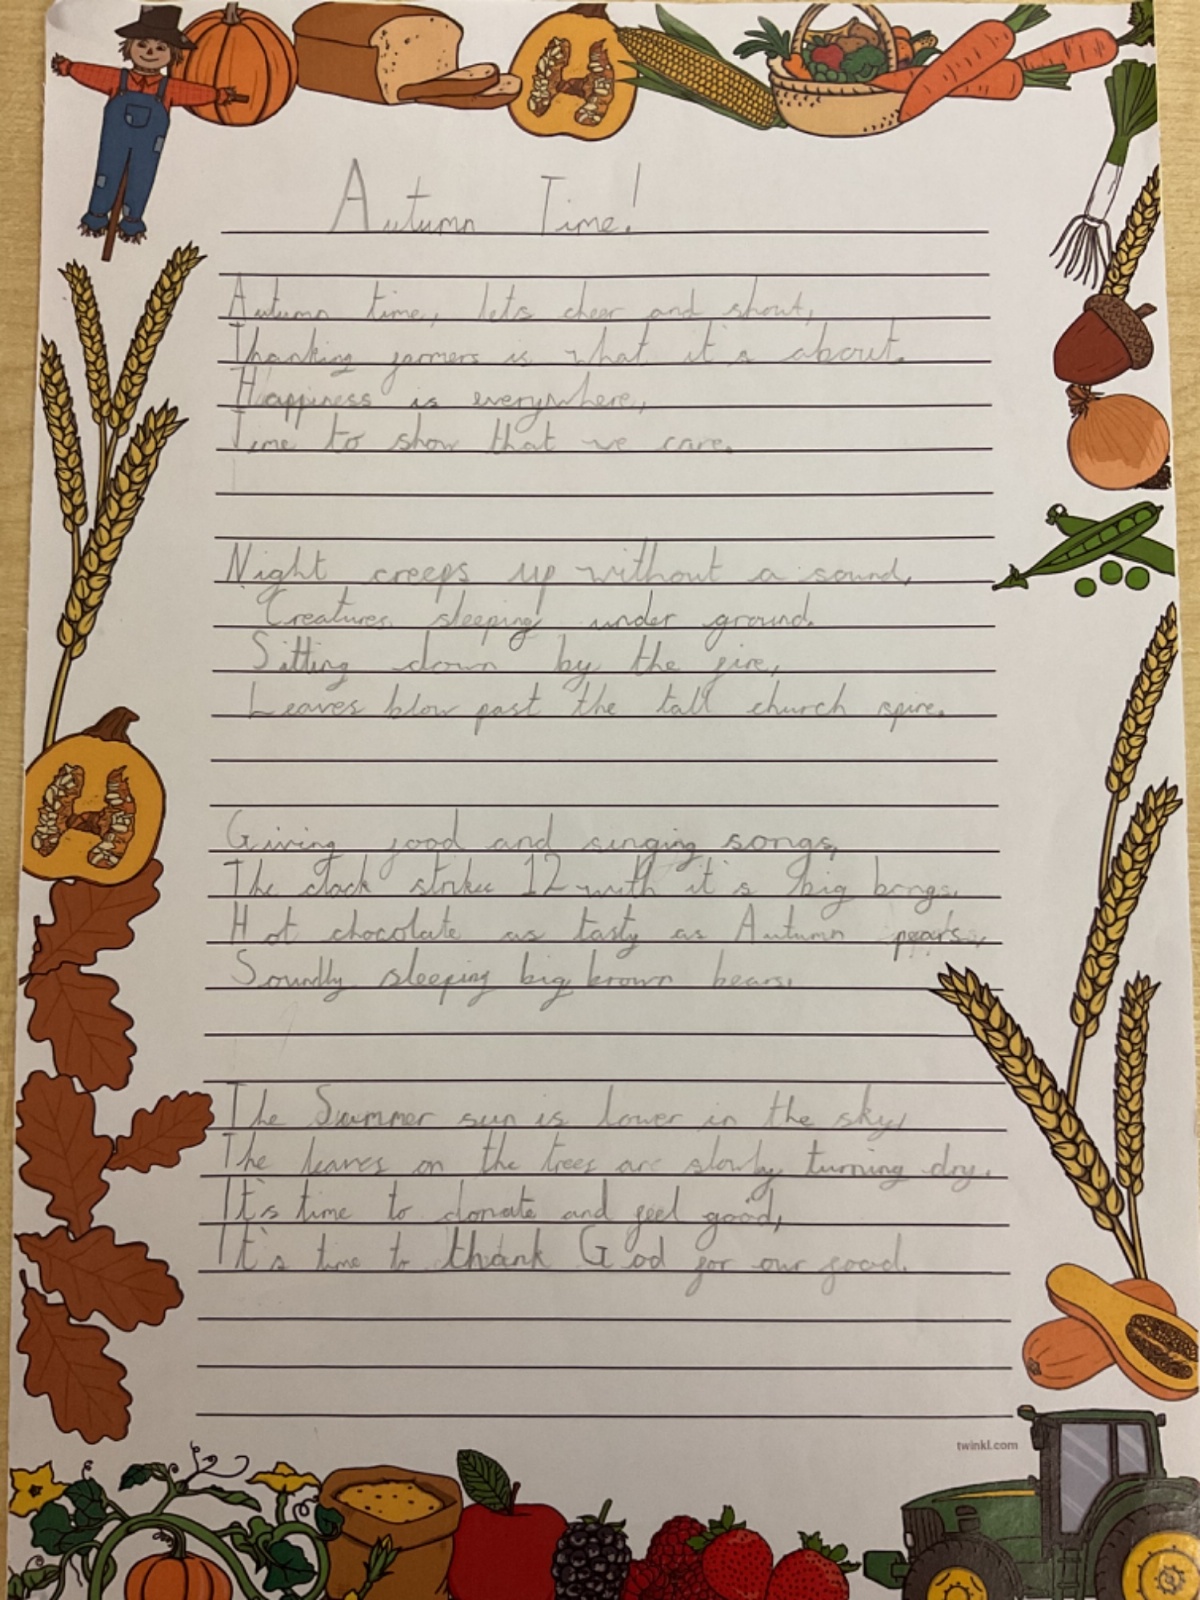 Autumn Time!
Autumn time, lets cheer and shout,
Thanking farmers is what it's about.
Happiness is everywhere,
Time to show that we care.
Night creeps up without a sound,
Creatures sleeping under ground.
Sitting down by the fire,
Leaves blow past the tall church spire.
Giving food and singing songs,
The clock strikes 12 with it's big bongs.
Hot chocolate as tasty as Autumn pears,
Soundly sleeping big brown bears.
The Summer sun is lower in the sky,
The leaves on the trees are slowly turning dry.
It's time to donate and feel good,
It's time to thank God for our food.
twinkl.com